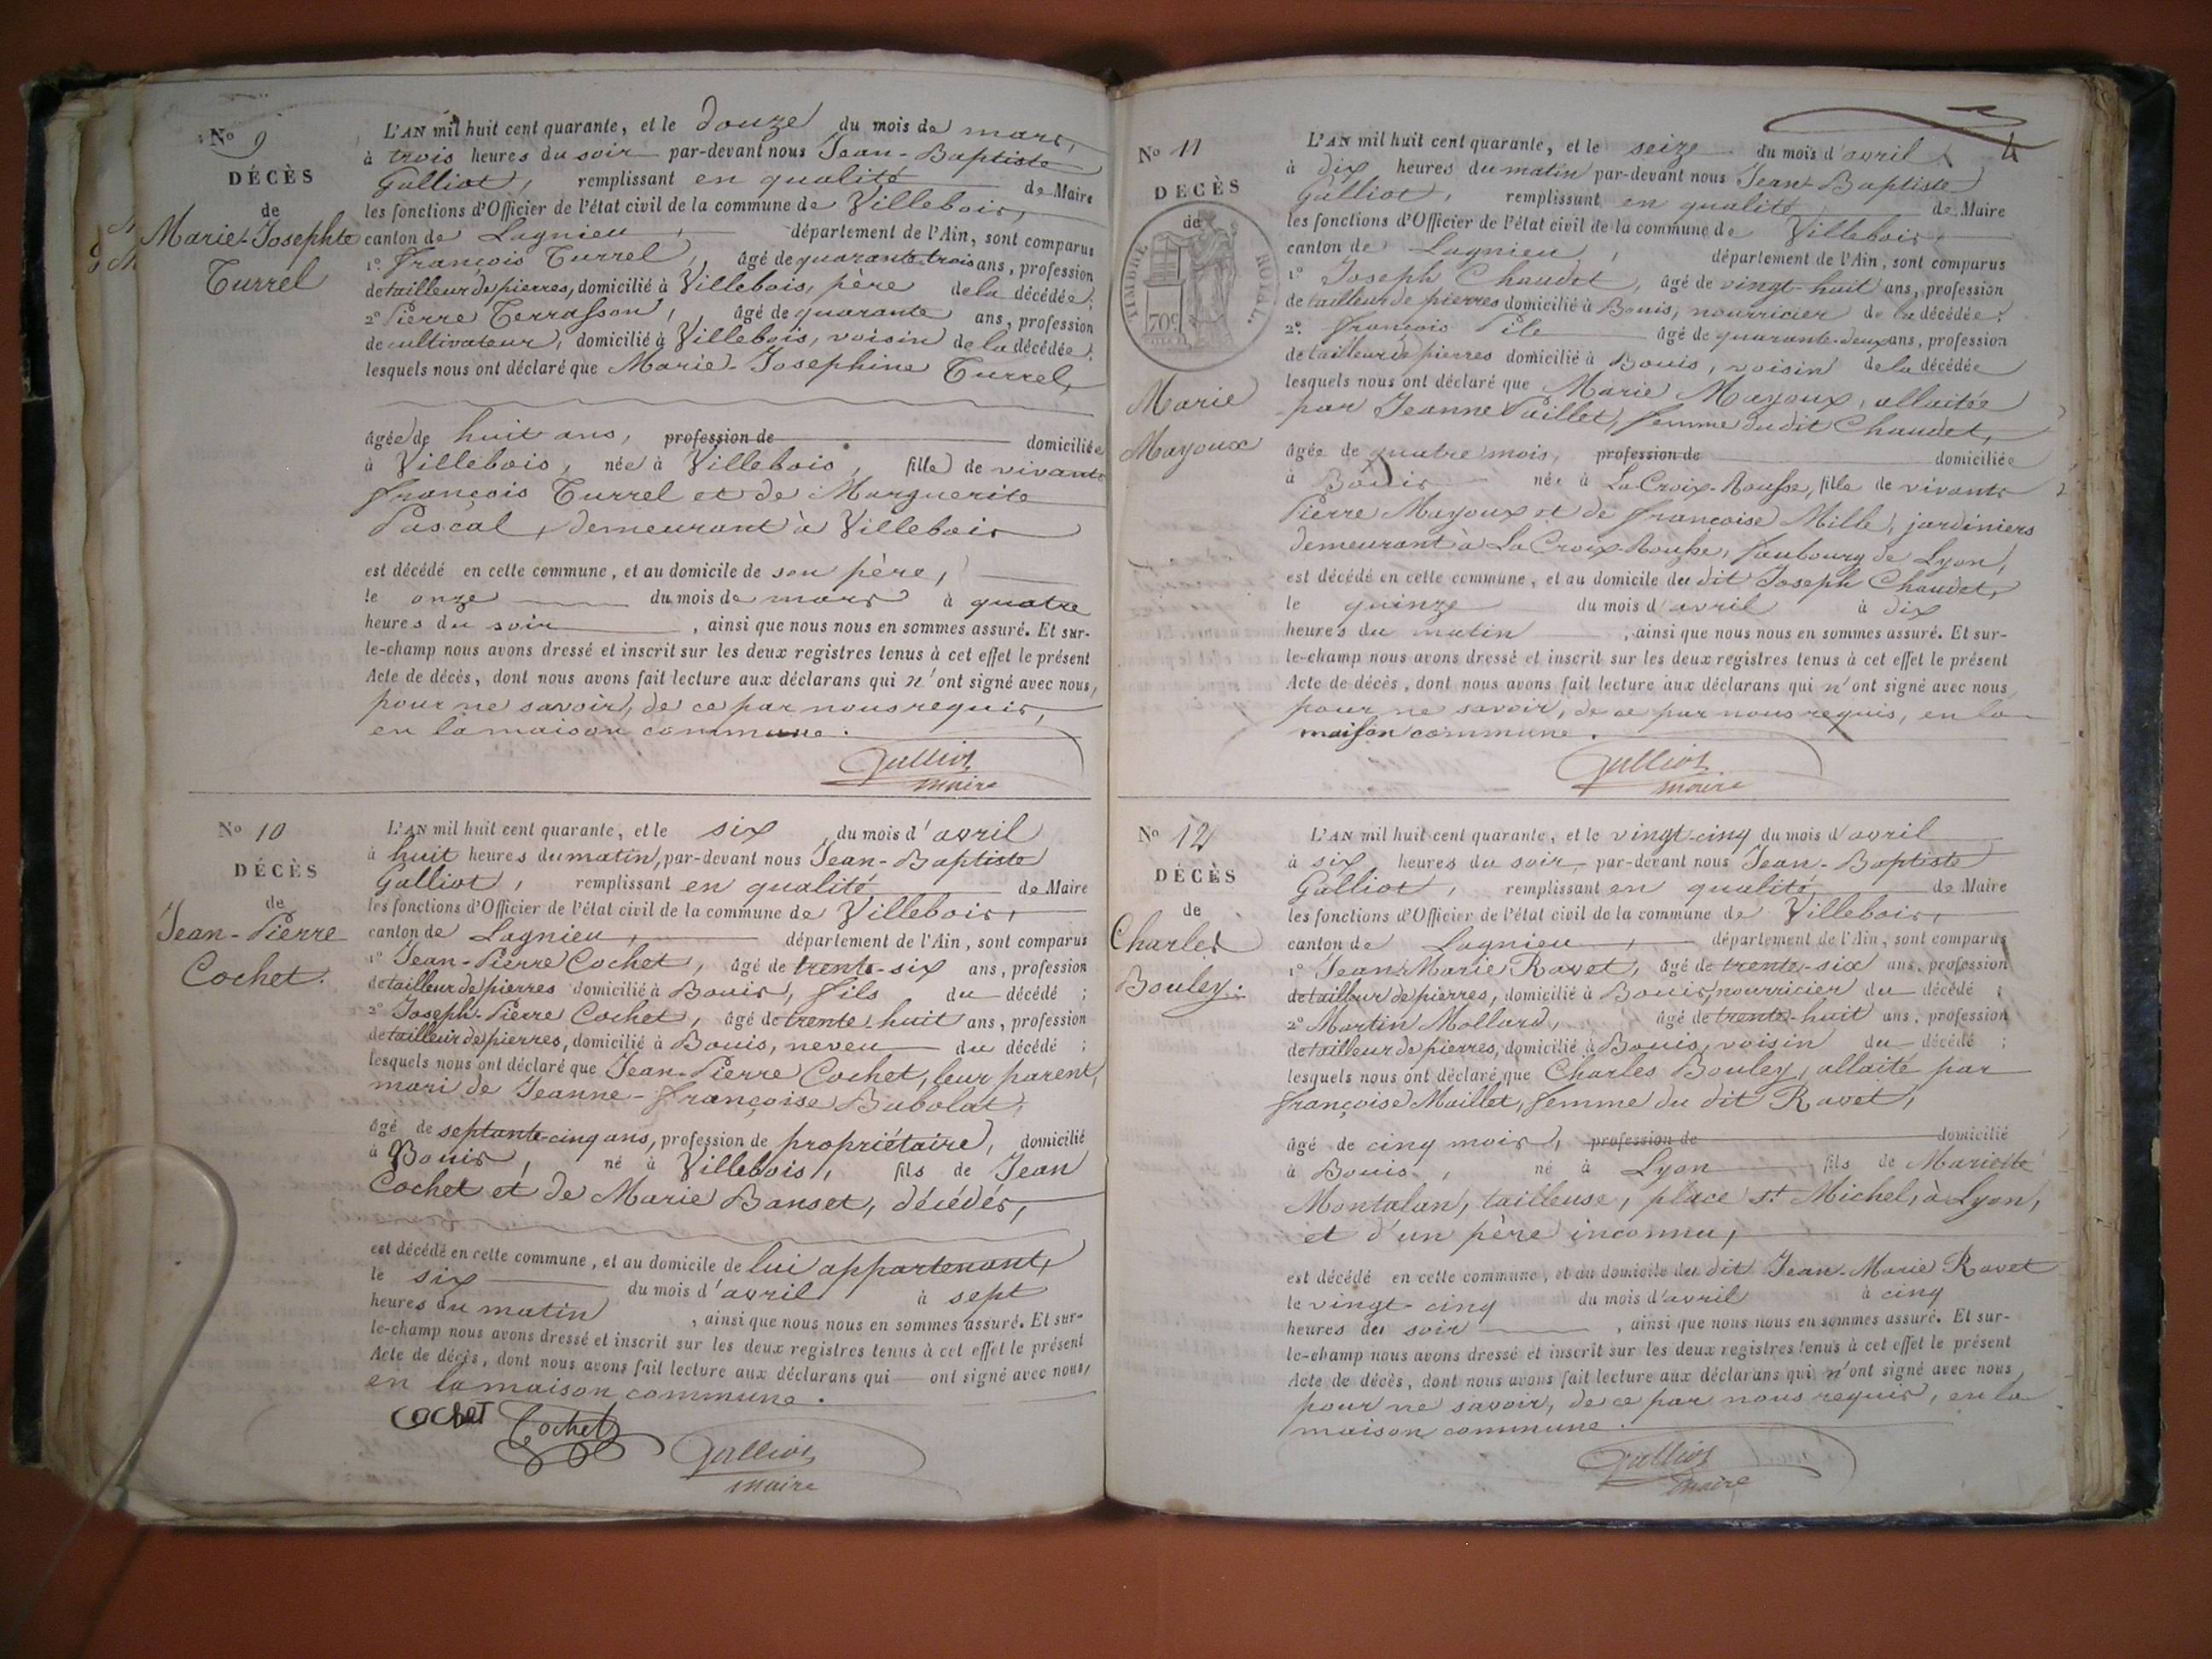 No 9
DÉCÈS
de
Marie-Josephte
Turrel
L'AN mil huit cent quarante, et le douze du mois de mars,
à trois heures du soir par-devant nous Jean-Baptiste
Galliot, remplissant en qualité de Maire
les fonctions d'Officier de l'état civil de la commune de Villebois,
canton de Lagnieu, département de l'Ain, sont comparus
1° François Turrel, âgé de quarante trois ans, profession
de tailleur de pierres, domicilié à Villebois, père de la décédée;
2° Pierre Terrasson, âgé de quarante ans, profession
de cultivateur, domicilié à Villebois, voisin de la décédée;
lesquels nous ont déclaré que Marie-Josephine Turrel,
âgée de huit ans, profession de domiciliée
à Villebois, née à Villebois, fille de vivants
François Turrel et de Marguerite
Pascal, demeurant à Villebois
est décédé en cette commune, et au domicile de son père,
le onze du mois de mars à quatre
heures du soir, ainsi que nous nous en sommes assuré. Et sur-
le-champ nous avons dressé et inscrit sur les deux registres tenus à cet effet le présent
Acte de décès, dont nous avons fait lecture aux déclarans qui n'ont signé avec nous,
pour ne savoir, de ce par nous requis,
en la maison commune.
Galliot
maire
No 10
DÉCÈS
de
Jean-Pierre
Cochet.
L'AN mil huit cent quarante, et le six du mois d'avril
à huit heures du matin, par-devant nous Jean-Baptiste
Galliot, remplissant en qualité de Maire
les fonctions d'Officier de l'état civil de la commune de Villebois,
canton de Lagnieu, département de l'Ain, sont comparus
1° Jean-Pierre Cochet, âgé de trente-six ans, profession
de tailleur de pierres domicilié à Bouis, fils du décédé;
2° Joseph-Pierre Cochet, âgé de trente huit ans, profession
de tailleur de pierres, domicilié à Bouis, neveu du décédé;
lesquels nous ont déclaré que Jean-Pierre Cochet, leur parent,
mari de Jeanne-Françoise Babolat,
âgé de septante-cinq ans, profession de propriétaire, domicilié
à Bouis, né à Villebois, fils de Jean
Cochet et de Marie Banset, décédés,
est décédé en cette commune, et au domicile de lui appartenant,
le six du mois d'avril à sept
heures du matin, ainsi que nous nous en sommes assuré. Et sur-
le-champ nous avons dressé et inscrit sur les deux registres tenus à cet effet le présent
Acte de décès, dont nous avons fait lecture aux déclarans qui ont signé avec nous,
en la maison commune.
COCHET Cochet
Galliot
maire
4
No 11
DÉCÈS
de
TIMBRE ROYAL.
70c
Marie
Mayoux
L'AN mil huit cent quarante, et le seize du mois d'avril
à dix heures du matin par-devant nous Jean-Baptiste
Galliot, remplissant en qualité de Maire
les fonctions d'Officier de l'état civil de la commune de Villebois,
canton de Lagnieu, département de l'Ain, sont comparus
1° Joseph Chaudet, âgé de vingt-huit ans, profession
de tailleur de pierres domicilié à Bouis, nourricier de la décédée;
2° François Pile âgé de quarante-deux ans, profession
de tailleur de pierres domicilié à Bouis, voisin de la décédée
lesquels nous ont déclaré que Marie Mayoux, allaitée
par Jeanne Paillet, femme du dit Chaudet,
âgée de quatre mois, profession de domiciliée
à Bouis née à La Croix-Rousse, fille de vivants
Pierre Mayoux et de Françoise Mille, jardiniers
demeurant à La Croix-Rousse, faubourg de Lyon,
est décédé en cette commune, et au domicile du dit Joseph Chaudet,
le quinze du mois d'avril à dix
heures du matin, ainsi que nous nous en sommes assuré. Et sur-
le-champ nous avons dressé et inscrit sur les deux registres tenus à cet effet le présent
Acte de décès, dont nous avons fait lecture aux déclarans qui n'ont signé avec nous
pour ne savoir, de ce par nous requis, en la
maison commune.
Galliot
maire
No 12
DÉCÈS
de
Charles
Bouley.
L'AN mil huit cent quarante, et le vingt-cinq du mois d'avril
à six heures du soir par-devant nous Jean-Baptiste
Galliot, remplissant en qualité, de Maire
les fonctions d'Officier de l'état civil de la commune de Villebois,
canton de Lagnieu, département de l'Ain, sont comparus
1° Jean Marie Ravet, âgé de trente-six ans, profession
de tailleur de pierres, domicilié à Bouis, nourricier du décédé;
2° Martin Mollard, âgé de trente-huit ans, profession
de tailleur de pierres, domicilié à Bouis, voisin du décédé;
lesquels nous ont déclaré que Charles Bouley, allaité par
Françoise Maillet, femme du dit Ravet,
âgé de cinq mois, profession de domicilié
à Bouis, né à Lyon fils de Mariette
Montalan, tailleuse, place st Michel, à Lyon,
et d'un père inconnu,
est décédé en cette commune, et au domicile du dit Jean-Marie Ravet
le vingt-cinq du mois d'avril à cinq
heures du soir, ainsi que nous nous en sommes assuré. Et sur-
le-champ nous avons dressé et inscrit sur les deux registres tenus à cet effet le présent
Acte de décès, dont nous avons fait lecture aux déclarans qui n'ont signé avec nous
pour ne savoir, de ce par nous requis, en la
maison commune.
Galliot
maire